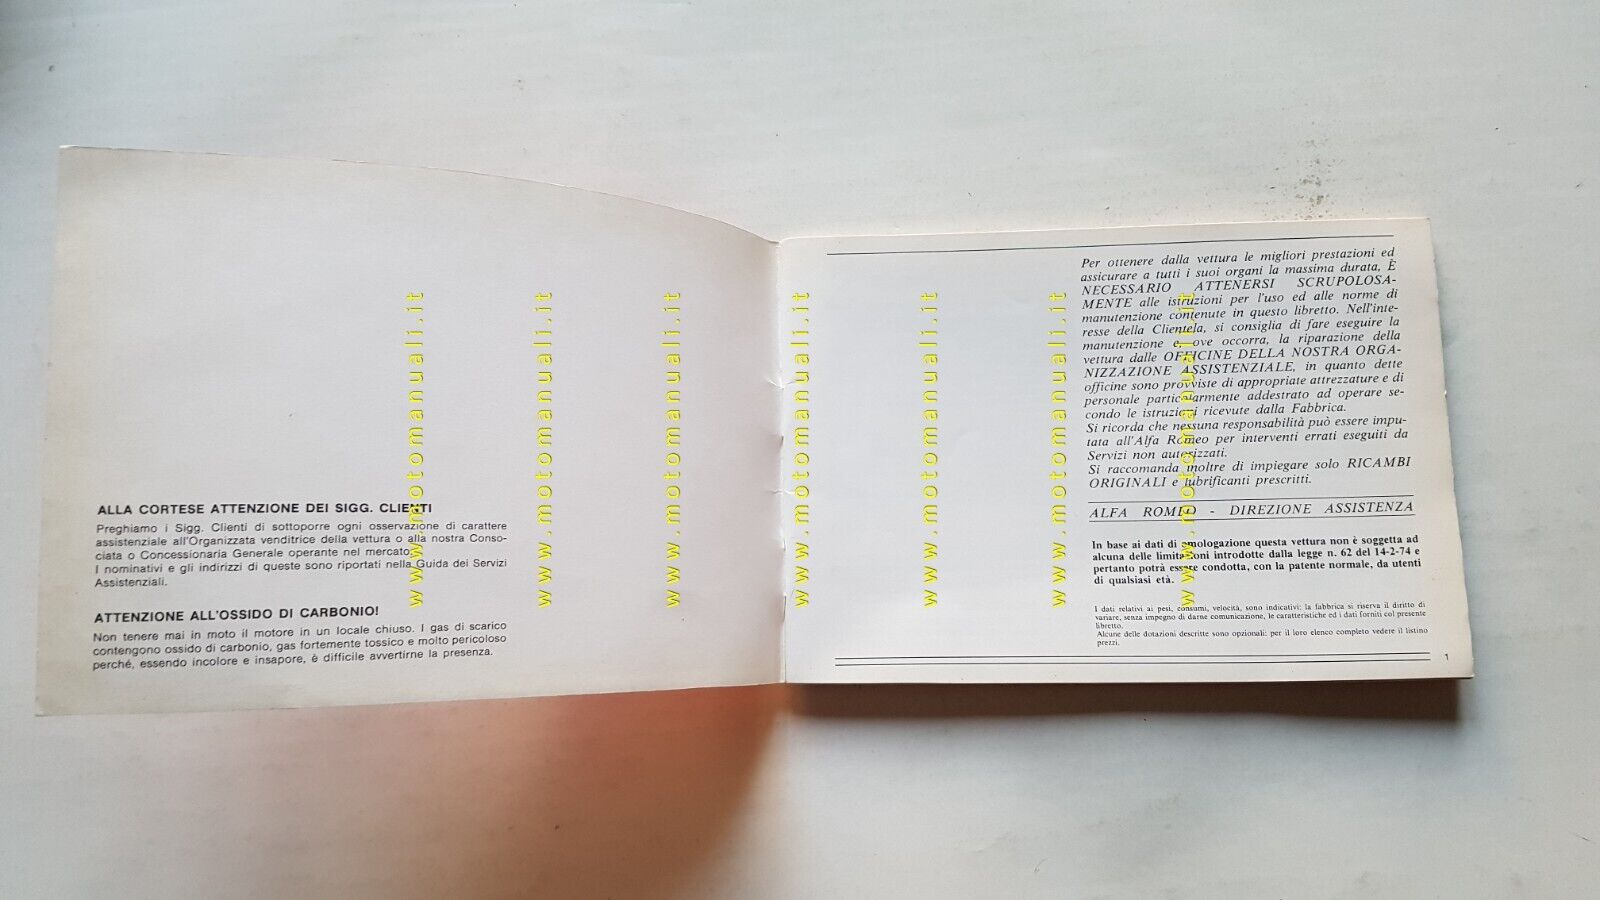 ALLA CORTESE ATTENZIONE DEI SIGG. CLIENTI
Preghiamo i Sigg. Clienti di sottoporre ogni osservazione di carattere
assistenziale all'Organizzata venditrice della vettura o alla nostra Conso-
ciata o Concessionaria Generale operante nel mercato.
I nominativi e gli indirizzi di queste sono riportati nella Guida dei Servizi
Assistenziali.
ATTENZIONE ALL'OSSIDO DI CARBONIO!
Non tenere mai in moto il motore in un locale chiuso. I gas di scarico
contengono ossido di carbonio, gas fortemente tossico e molto pericoloso
perché, essendo incolore e insapore, è difficile avvertirne la presenza.
Per ottenere dalla vettura le migliori prestazioni ed
assicurare a tutti i suoi organi la massima durata, È
NECESSARIO ATTENERSI SCRUPOLOSA-
MENTE alle istruzioni per l'uso ed alle norme di
manutenzione contenute in questo libretto. Nell'inte-
resse della Clientela, si consiglia di fare eseguire la
manutenzione e, ove occorra, la riparazione della
vettura dalle OFFICINE DELLA NOSTRA ORGA-
NIZZAZIONE ASSISTENZIALE, in quanto dette
officine sono provviste di appropriate attrezzature e di
personale particolarmente addestrato ad operare se-
condo le istruzioni ricevute dalla Fabbrica.
Si ricorda che nessuna responsabilità può essere impu-
tata all'Alfa Romeo per interventi errati eseguiti da
Servizi non autorizzati.
Si raccomanda inoltre di impiegare solo RICAMBI
ORIGINALI e lubrificanti prescritti.
ALFA ROMEO - DIREZIONE ASSISTENZA
In base ai dati di omologazione questa vettura non è soggetta ad
alcuna delle limitazioni introdotte dalla legge n. 62 del 14-2-74 e
pertanto potrà essere condotta, con la patente normale, da utenti
di qualsiasi età.
I dati relativi ai pesi, consumi, velocità, sono indicativi: la fabbrica si riserva il diritto di
variare, senza impegno di darne comunicazione, le caratteristiche ed i dati forniti col presente
libretto.
Alcune delle dotazioni descritte sono opzionali: per il loro elenco completo vedere il listino
prezzi.
1
www.motomanuali.it
www.motomanuali.it
www.motomanuali.it
www.motomanuali.it
www.motomanuali.it
www.motomanuali.it
www.motomanuali.it